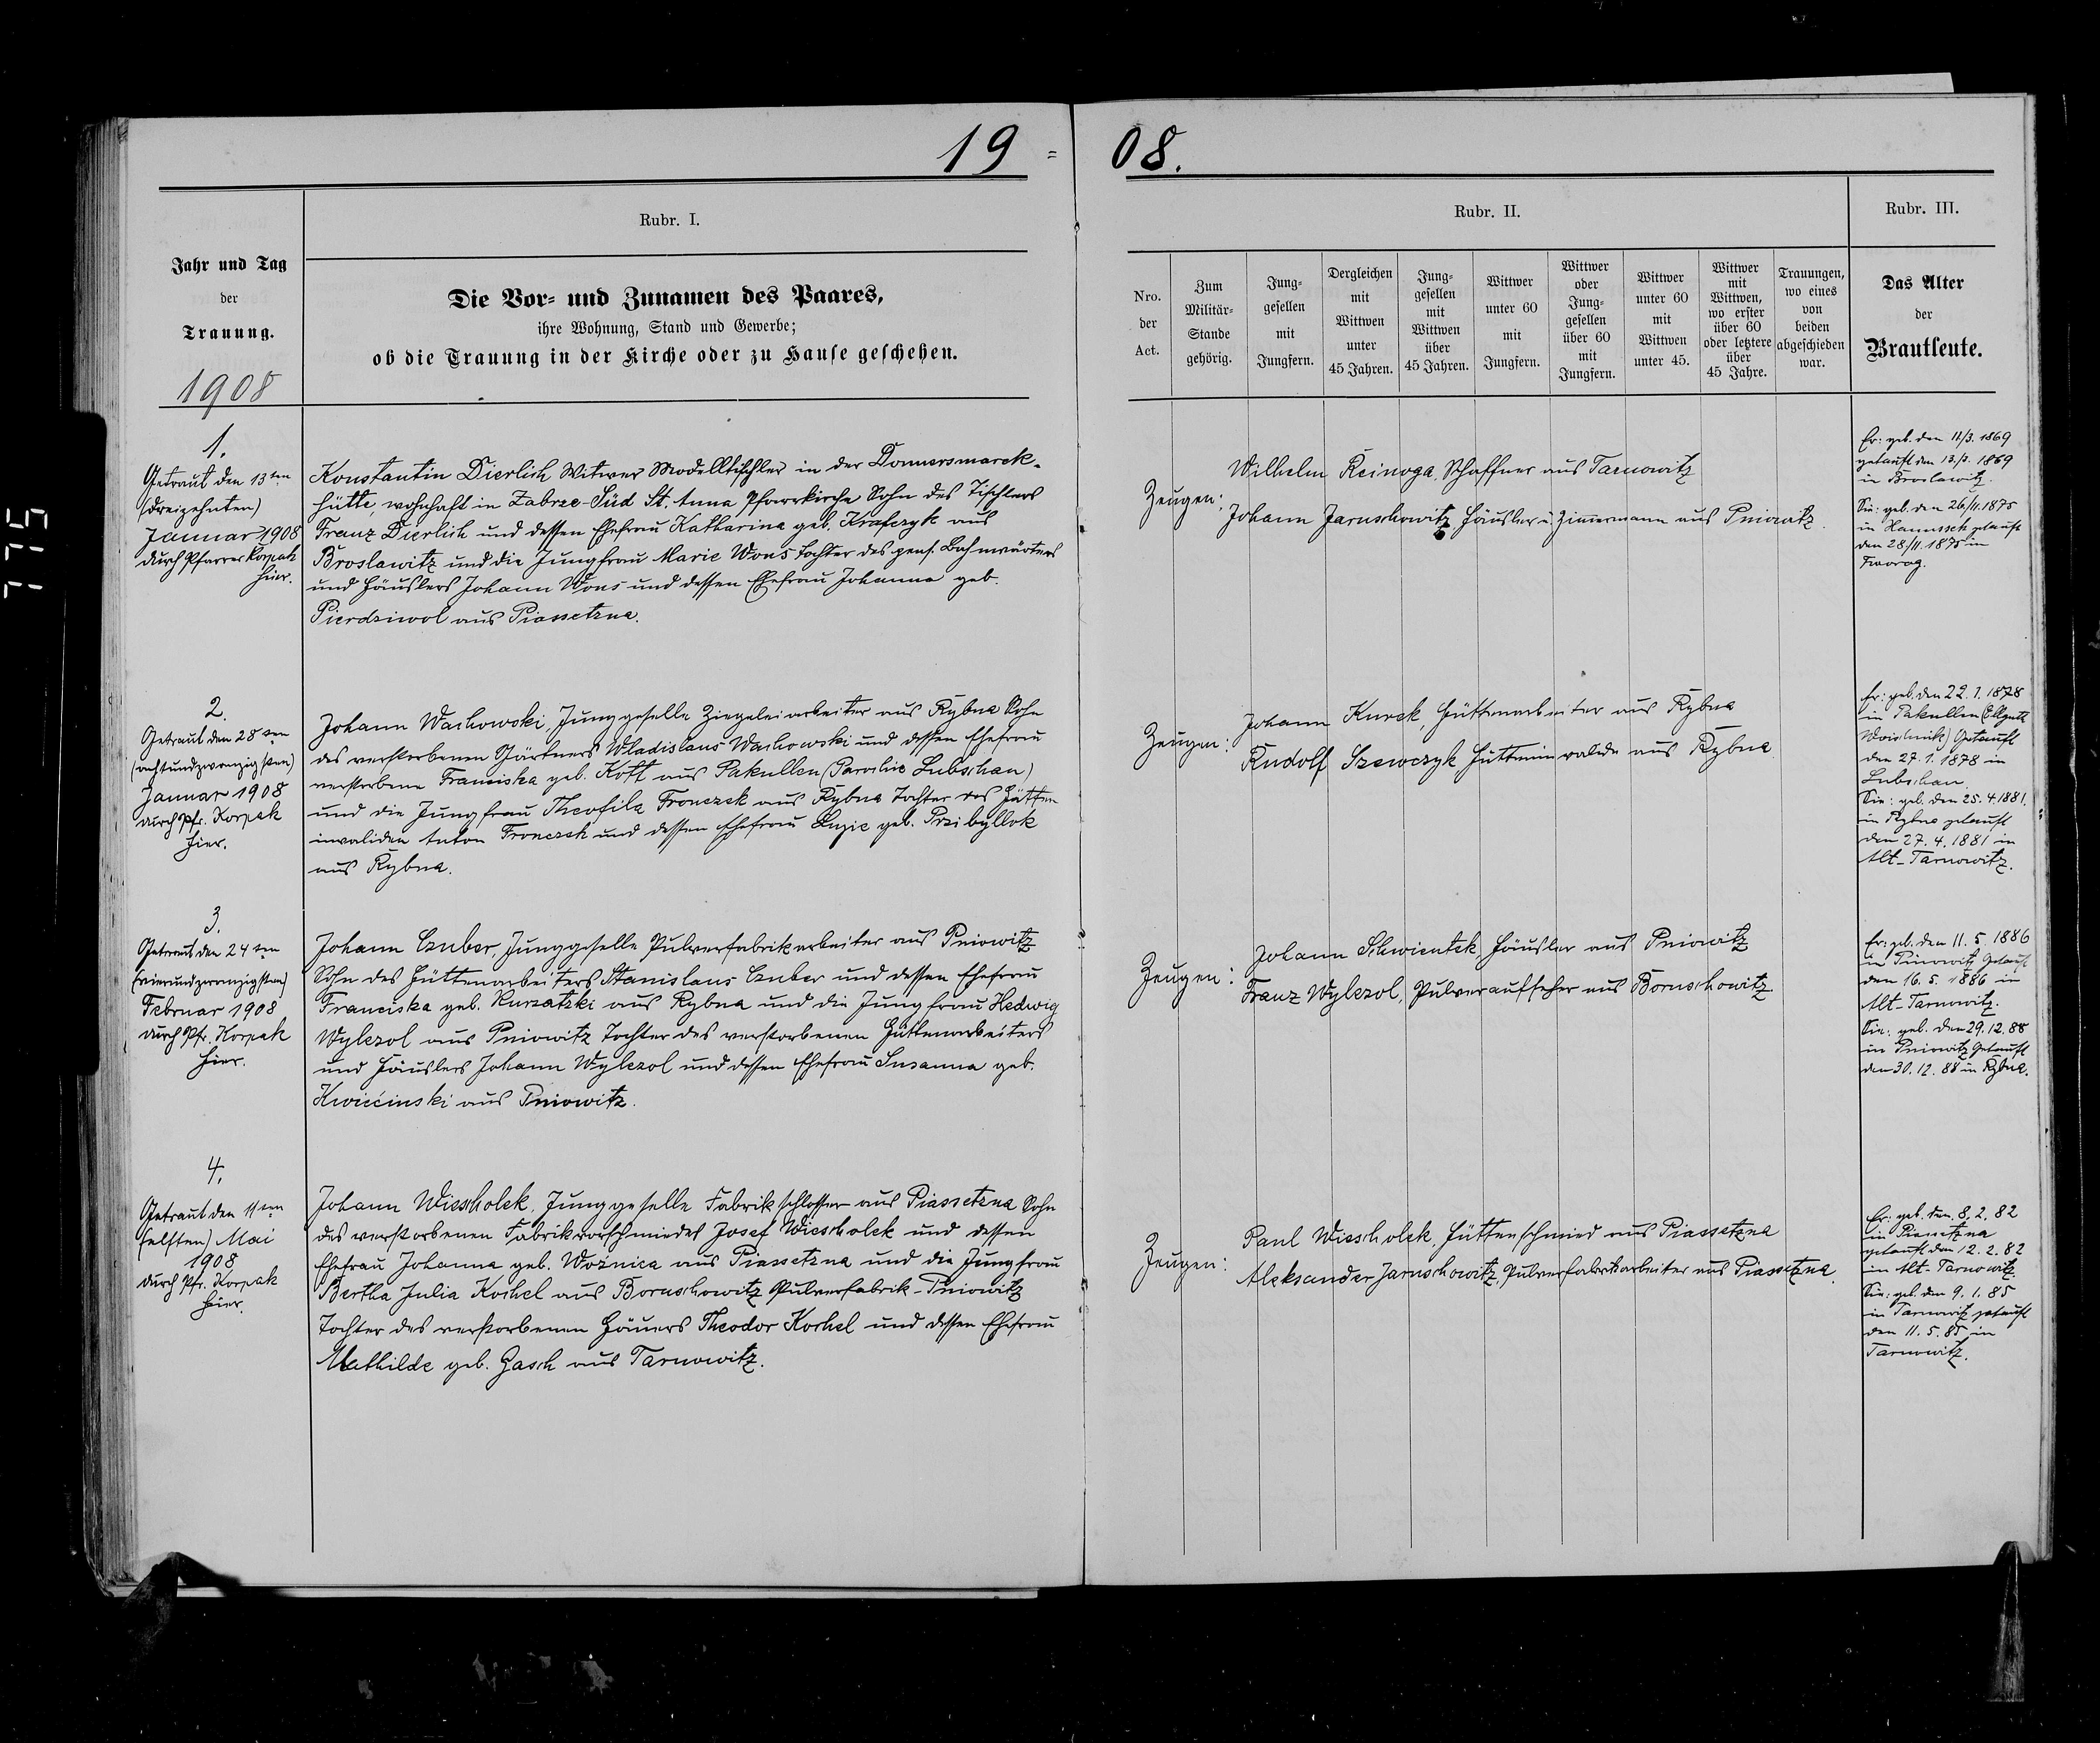 19 = 08.
Rubr. I.
Jahr und Tag
der
Trauung.
1908
Die Vor- und Zunamen des Paares,
ihre Wohnung, Stand und Gewerbe;
ob die Trauung in der Kirche oder zu Hause geschehen.
Rubr. II.
Rubr. III.
Nro.
der
Act.
Zum
Militär-
Stande
gehörig.
Jung-
gesellen
mit
Jungfern.
Dergleichen
mit
Wittwen
unter
45 Jahren.
Jung-
gesellen
mit
Wittwen
über
45 Jahren.
Wittwer
unter 60
mit
Jungfern.
Wittwer
oder
Jung-
gesellen
über 60
mit
Jungfern.
Wittwer
unter 60
mit
Wittwen
unter 45.
Wittwer
mit
Wittwen,
wo erster
über 60
oder letztere
über
45 Jahre.
Trauungen,
wo eines
von
beiden
abgeschieden
war.
Das Alter
der
Brautleute.
1.
Getraut den 13ten
(dreizehnten)
Januar 1908
durch Pfarrer Korpak
hier.
Konstantin Dierlich Witwer Modelltischler in der Donnersmarck-
hütte, wohnhaft in Zabrze-Süd St. Anna Pfarrkirche Sohn des Tischlers
Franz Dierlich und dessen Ehefrau Katharina geb. Krafczyk aus
Broslawitz und die Jungfrau Marie Wons Tochter des pens. Bahnwärters
und Häuslers Johann Wons und dessen Ehefrau Johanna geb.
Pierdziwol aus Piassetzna.
Zeugen:
Wilhelm Reinoga, Schaffner aus Tarnowitz
Johann Jaruschowitz Häusler u Zimmermann aus Pniowitz.
Er: geb. den 11/3. 1869
getauft den 1869
in Broslawitz.
Sie: geb. den 26/11. 1875
in Hanussek getauft
den 28/11. 1875 in
Tworog.
2.
Getraut den 28ten
(achtundzwanzigsten)
Januar 1908
durch Pfr. Korpak
hier.
Johann Wachowski Junggeselle Ziegeleiarbeiter aus Rybna Sohn
des verstorbenen Gärtners Wladislaus Wachowski und dessen Ehefrau
verstorbene Franciska geb. Kott aus Pakullen (Parochie Lubschau)
und die Jungfrau Theofila Fronczek aus Rybna Tochter des Hütten
invaliden Anton Fronczek und dessen Ehefrau Luzie geb. Przibyllok
aus Rybna.
Zeugen:
Johann Kurek, Hüttenarbeiter aus Rybna
Rudolf Szewczyk Hütteninvalide aus Rybna
Er: geb. den 22. 1. 1878
in Pakullen (Ellgutt
Woischnik) Getauft
den 27. 1. 1878 in
Lubschau.
Sie: geb. den 25. 4. 1881.
in Rybna getauft
den 27. 4. 1881 in
Alt-Tarnowitz.
3.
Getraut den 24ten
(vierundzwanzigsten)
Februar 1908
durch Pfr. Korpak
hier.
Johann Czuber, Junggeselle Pulverfabrikarbeiter aus Pniowitz
Sohn des Hüttenarbeiters Stanislaus Czuber und dessen Ehefrau
Franciska geb. Kurzatzki aus Rybna und die Jungfrau Hedwig
Wylezol aus Pniowitz Tochter des verstorbenen Hüttenarbeiters
und Häuslers Johann Wylezol und dessen Ehefrau Susanna geb.
Kwieciński aus Pniowitz.
Zeugen:
Johann Schwientek Häusler aus Pniowitz
Franz Wylezol, Pulveraufseher aus Boruschowitz
Er: geb. den 11. 5. 1886
in Pniowitz Getauft
den 16. 5. 1886 in
Alt-Tarnowitz.
Sie: geb. den 29. 12. 88
in Pniowitz Getauft
den 30. 12. 88 in Rybna.
4.
Getraut den 11ten
(elften) Mai
1908
durch Pfr. Korpak
hier.
Johann Wiescholek, Junggeselle Fabrikschlosser aus Piassetzna Sohn
des verstorbenen Fabrikvorschmiedes Josef Wiescholek und dessen
Ehefrau Johanna geb. Woźnica aus Piassetzna und die Jungfrau
Bertha Julia Kochel aus Boruschowitz Pulverfabrik-Pniowitz
Tochter des verstorbenen Häuers Theodor Kochel und dessen Ehefrau
Mathilde geb. Gasch aus Tarnowitz.
Zeugen:
Paul Wiescholek, Hüttenschmied aus Piassetzna
Aleksander Jaruschowitz, Pulverfabrikarbeiter aus Piassetzna.
Er: geb. den 8. 2. 82
in Piassetzna
getauft den 12. 2. 82
in Alt-Tarnowitz.
Sie: geb. den 9. 1. 85
in Tarnowitz getauft
den 11. 5. 85 in
Tarnowitz.
775